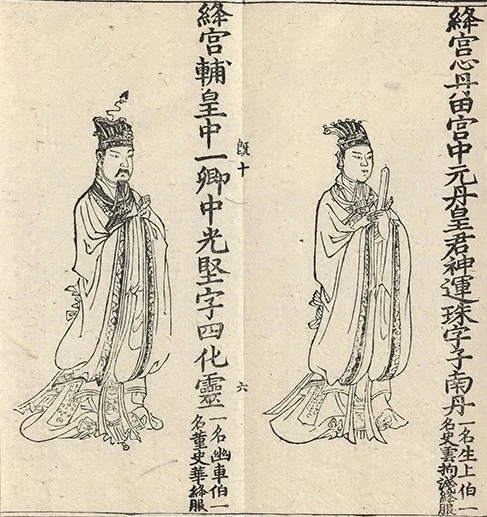 絳宮心丹田宮中元丹皇君神運珠字子南丹
一名生上伯一
名史雲拘淺絳服
既十
六
絳宮輔皇中一卿中光堅字四化靈
一名幽車伯一
名董史華絳服